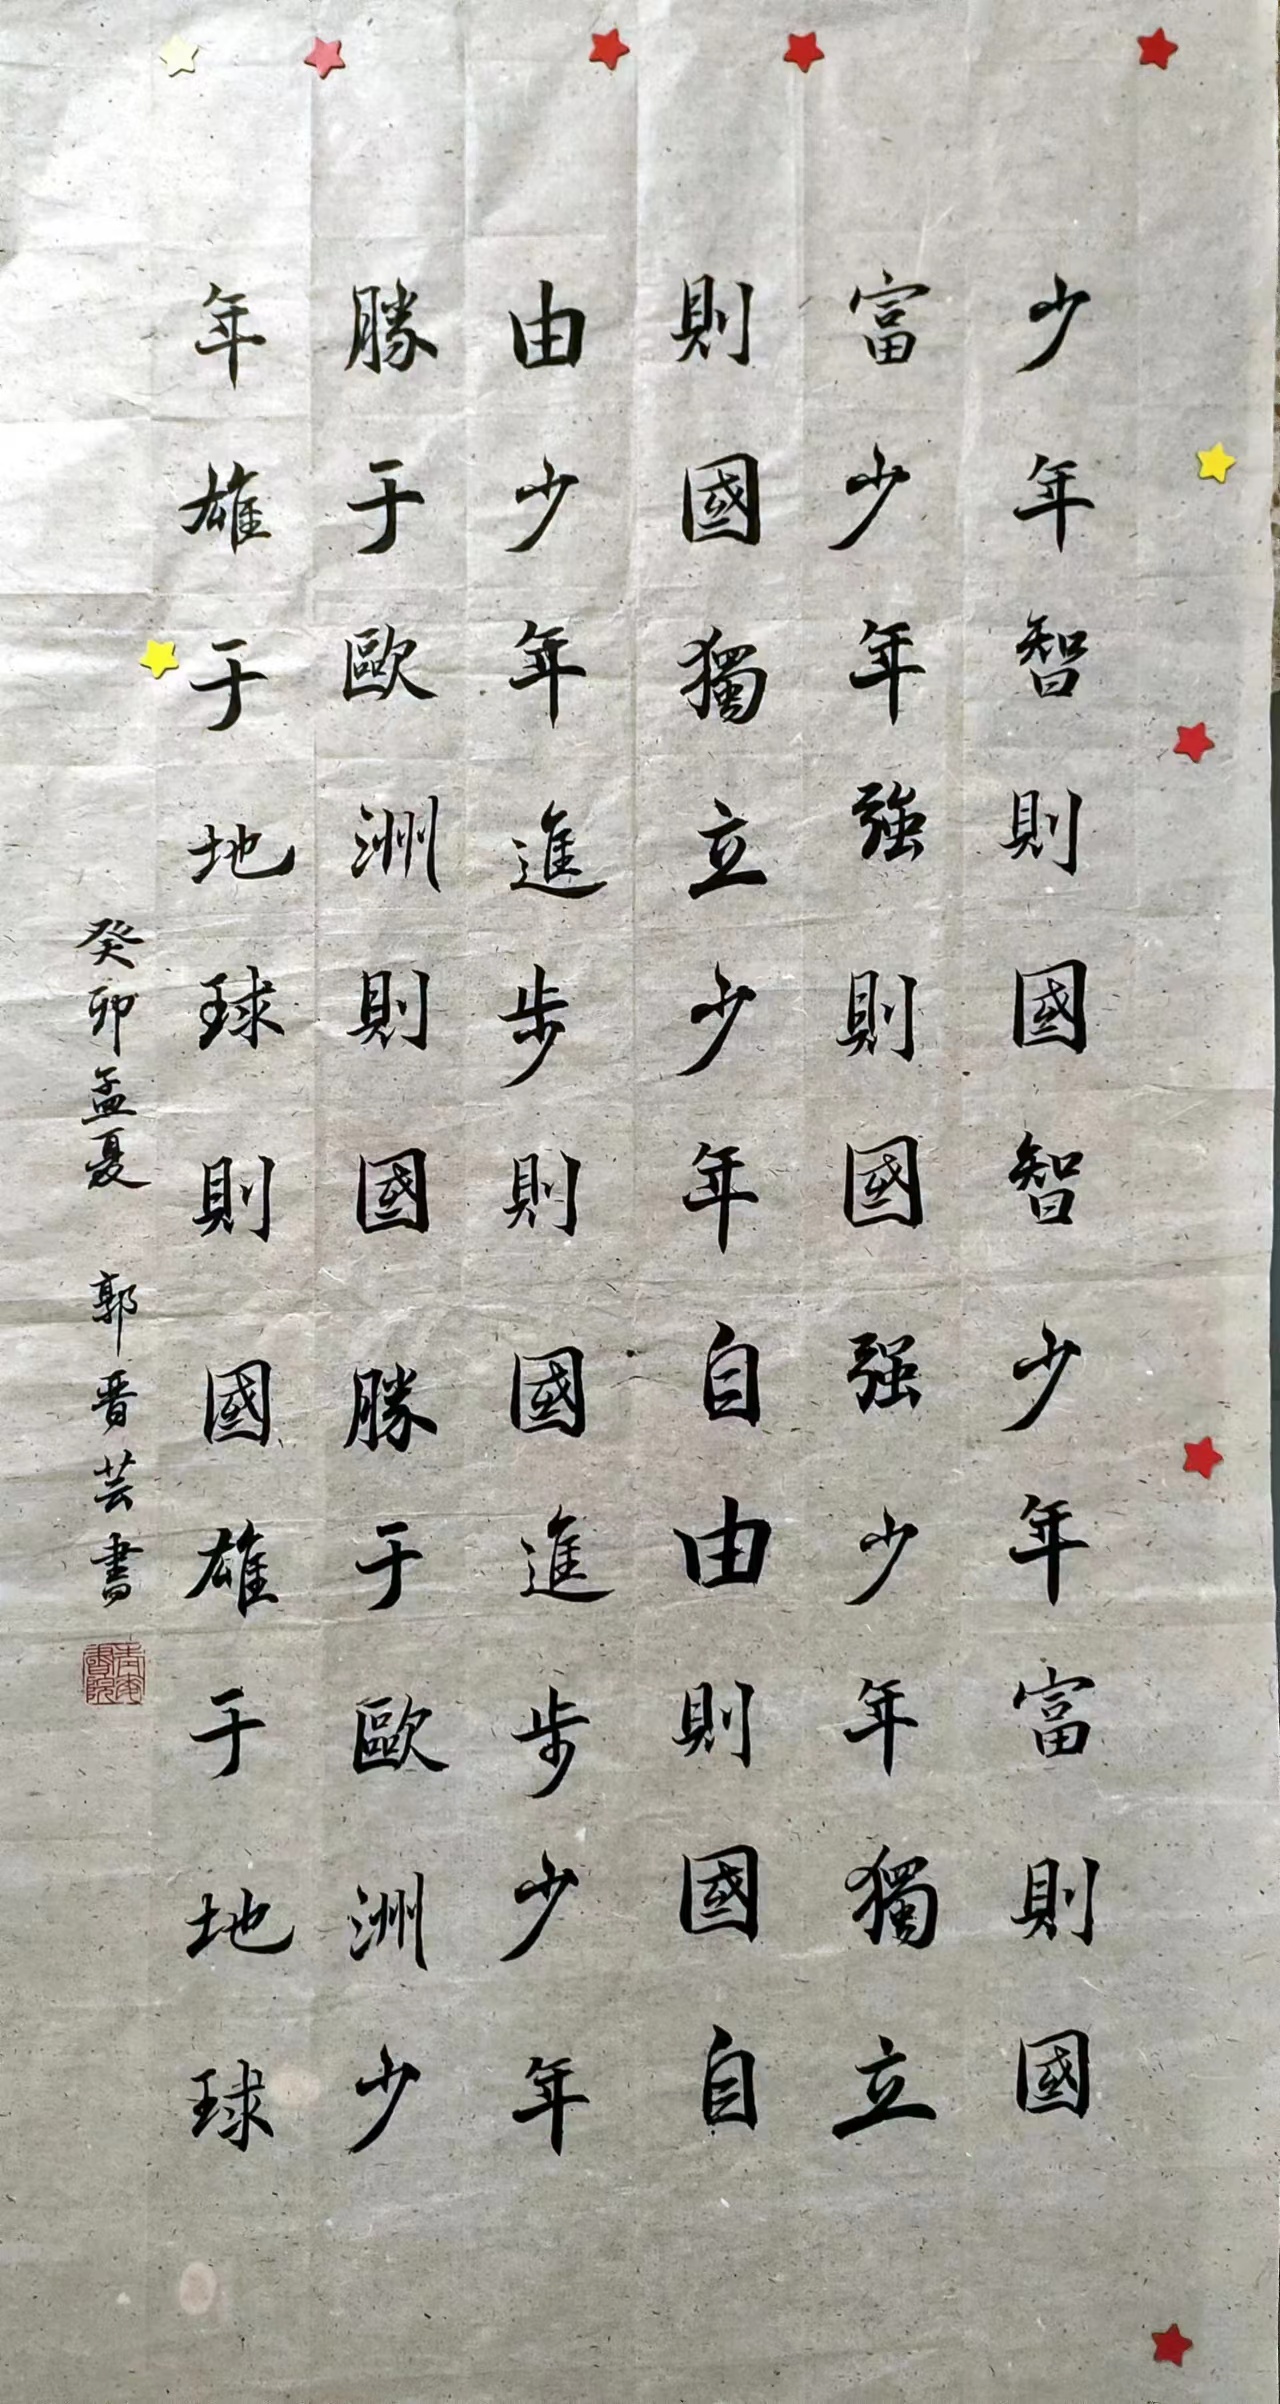 少年智則國智少年富則國
富少年強則國强少年獨立
則國獨立少年自由則國自
由少年進步則國進步少年
勝于歐洲則國勝于歐洲少
年雄于地球則國雄于地球
癸卯孟夏 郭晋芸書